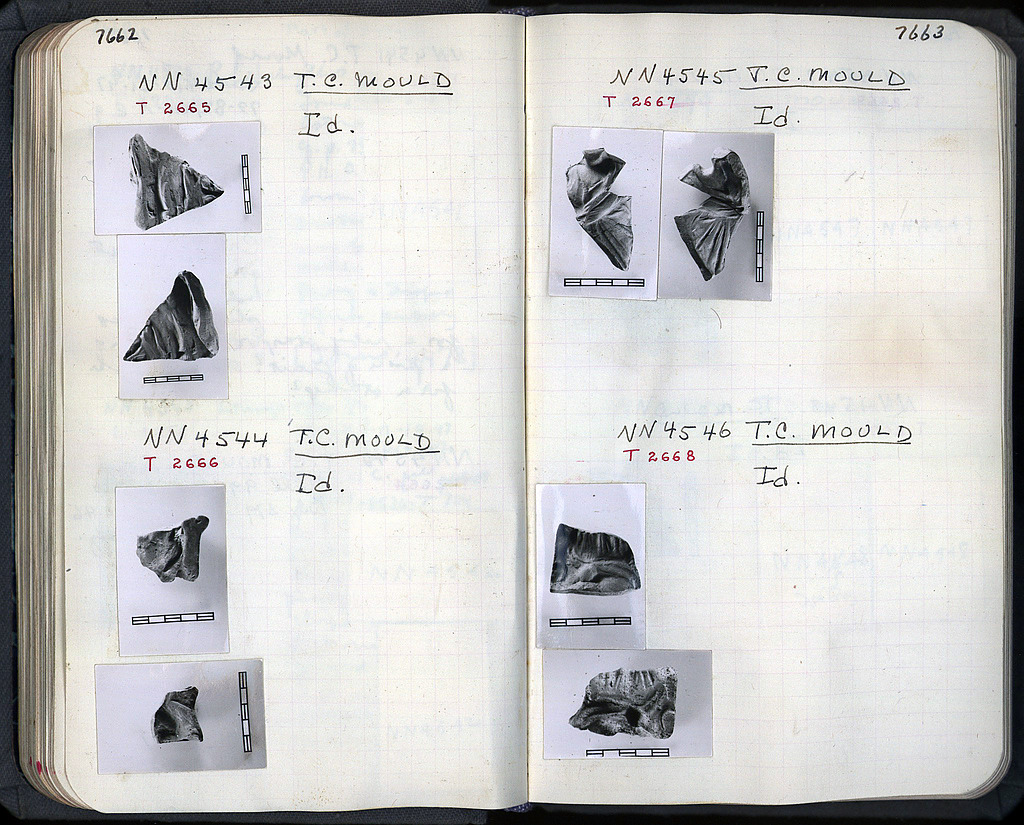 7662
NN 4543 T.C. MOULD
T 2665
Id.
NN 4544 T.C. MOULD
T 2666
Id.
7663
NN 4545 T.C. MOULD
T 2667
Id.
NN 4546 T.C. MOULD
T 2668
Id.